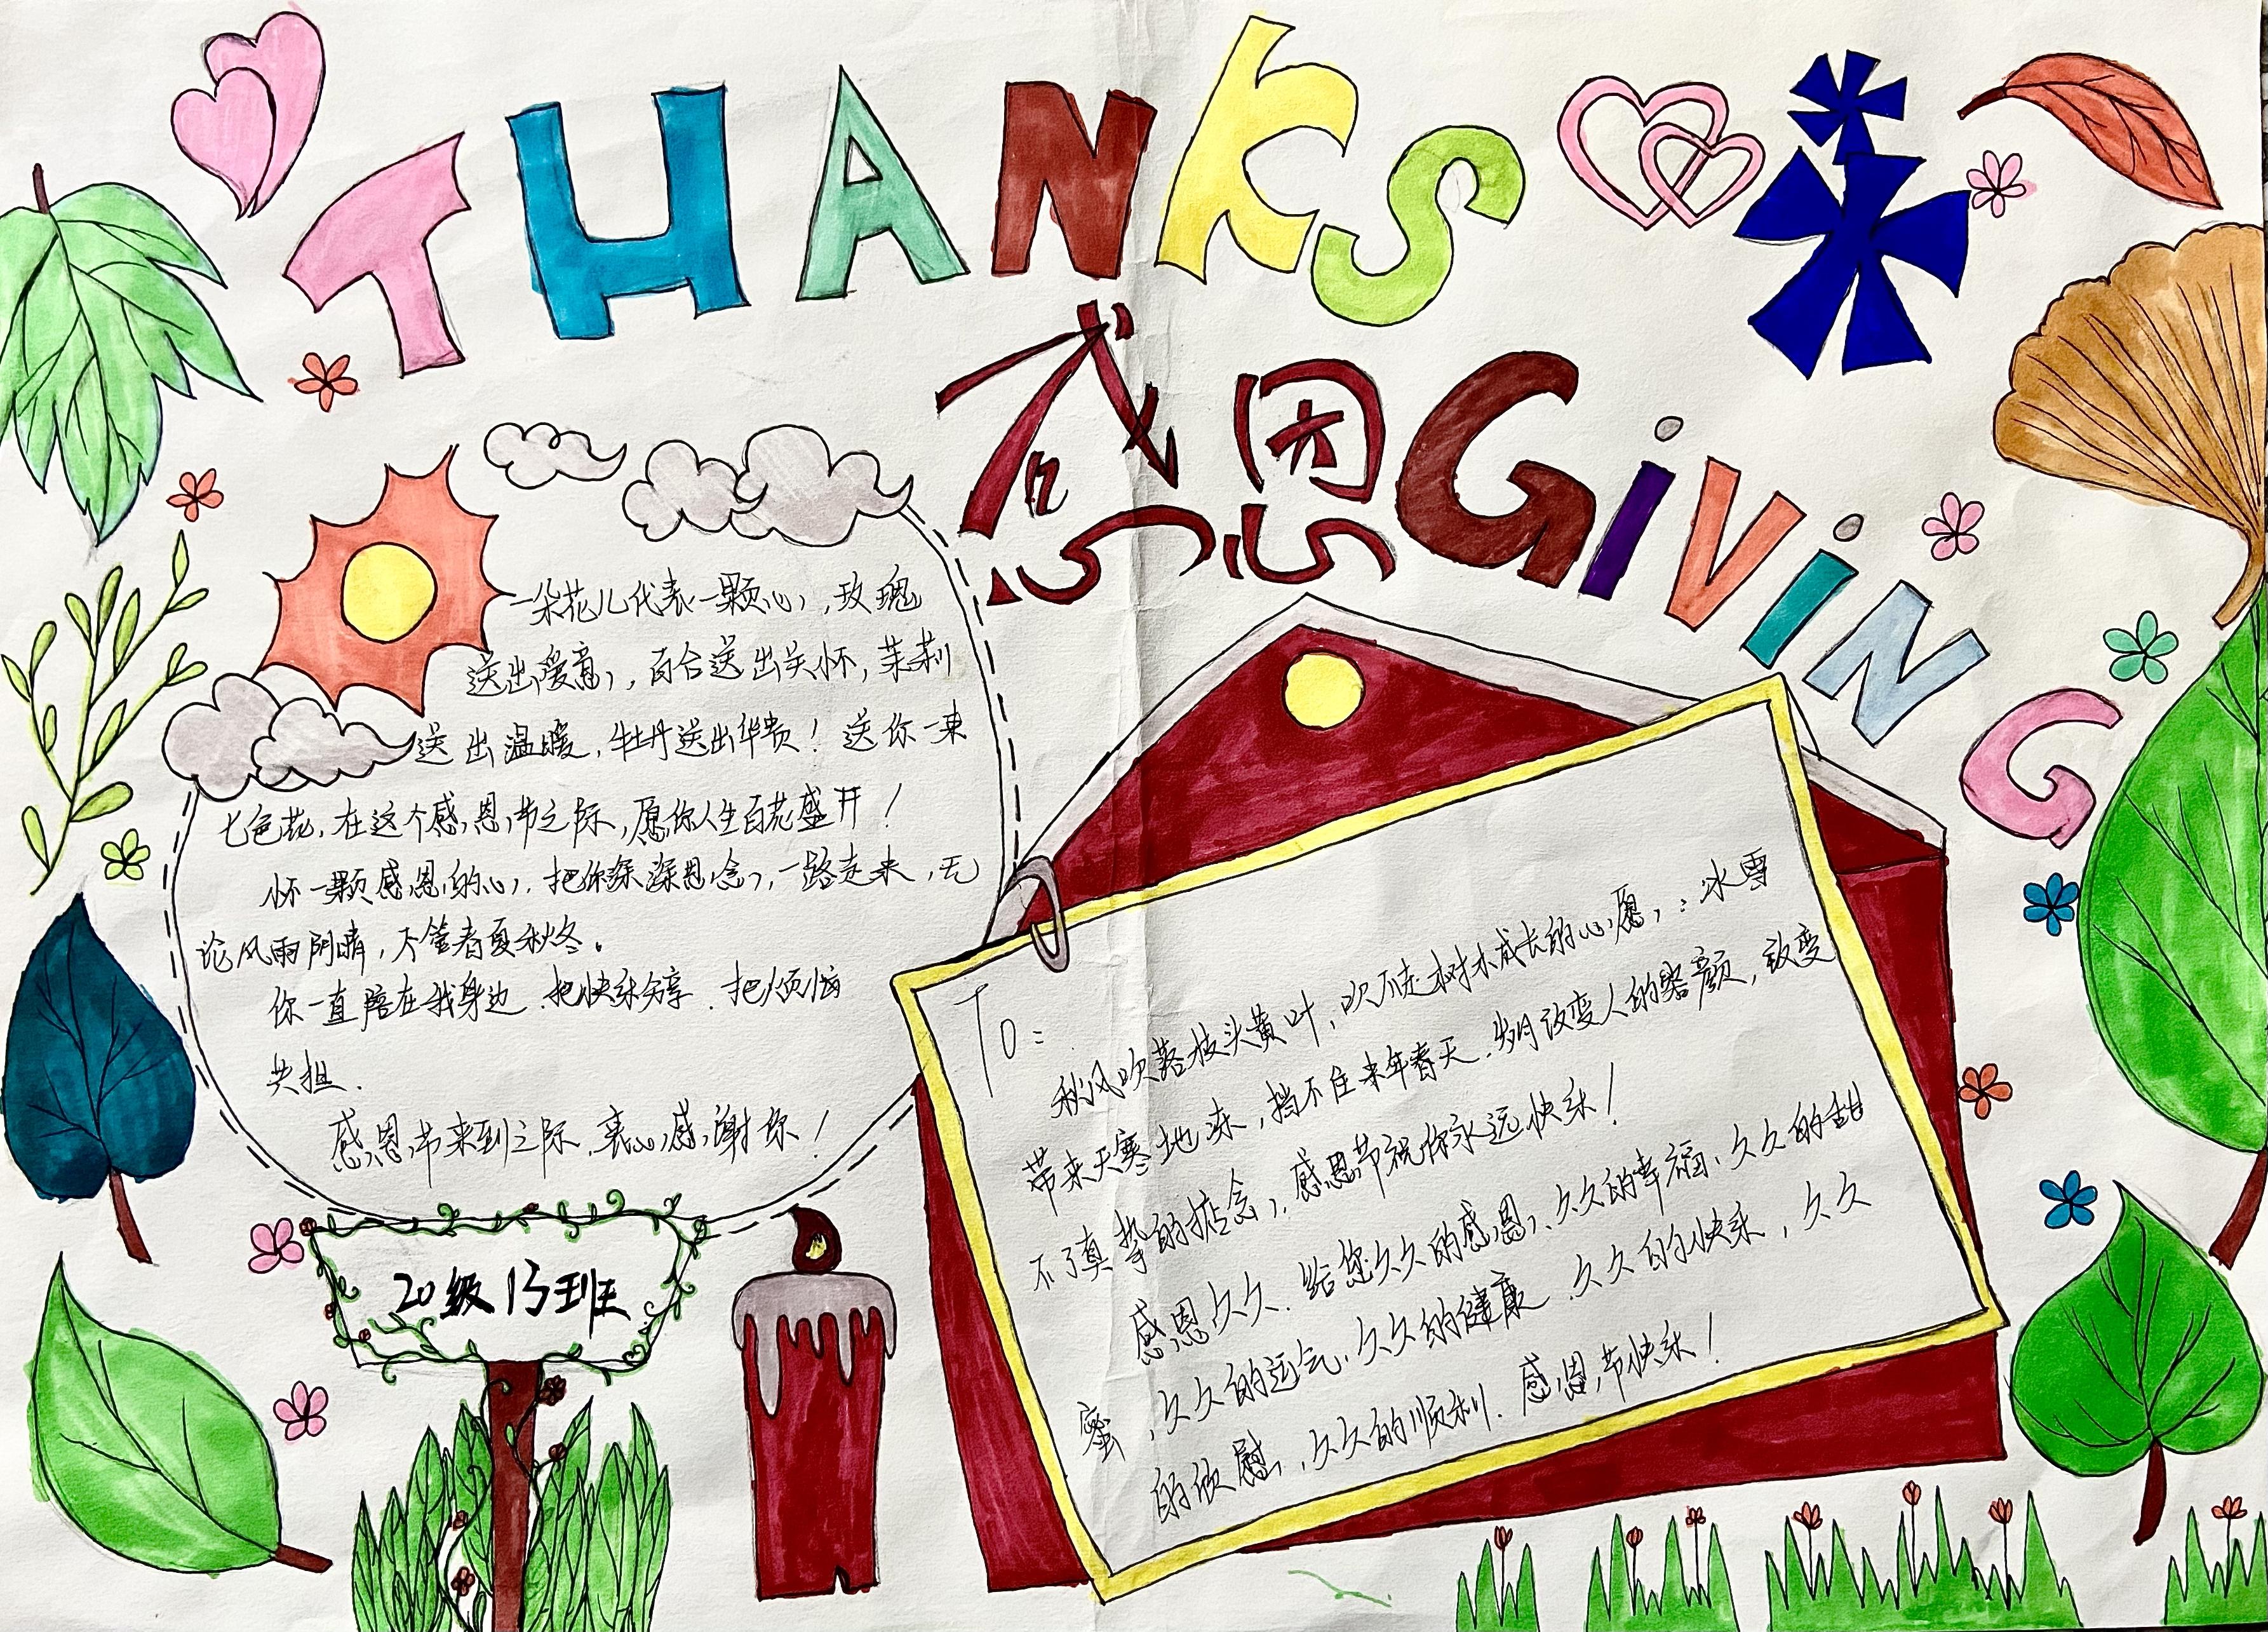 THANKS
感恩
GiViNG
一朵花儿代表一颗心,玫瑰
送出爱意,百合送出关怀,茉莉
送出温暖,牡丹送出华贵!送你一束
七色花,在这个感恩节之际,愿你人生百花盛开!
怀一颗感恩的心,把你深深思念,一路走来,无
论风雨阴晴,不管春夏秋冬。
你一直陪在我身边.把快乐分享.把烦恼
共担.
感恩节来到之际.衷心感谢你!
To:
秋风吹落枝头黄叶,吹不走树木成长的心愿,:冰雪
带来天寒地冻,挡不住来年春天.岁月改变人的容颜,改变
不了真挚的惦念,感恩节祝你永远快乐!
感恩久久.给您久久的感恩、久久的幸福、久久的甜
蜜,久久的运气、久久的健康.久久的快乐,久久
的欣慰,久久的顺利.感恩节快乐!
20级13班